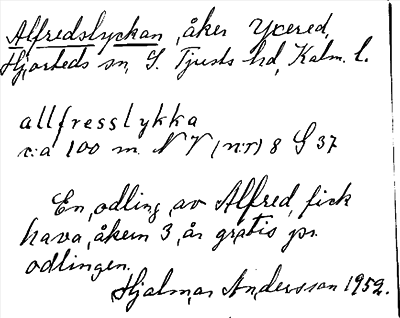 Alfredslyckan, åker Yxered,
Hjorteds sn, S. Tjusts hd, Kalm. l.
allfresslykka
c:a 100 m. NV (n:r) 8 G 37
En odling av Alfred, fick
hava åkern 3 år gratis pr.
odlingen.
Hjalmar Andersson 1952.